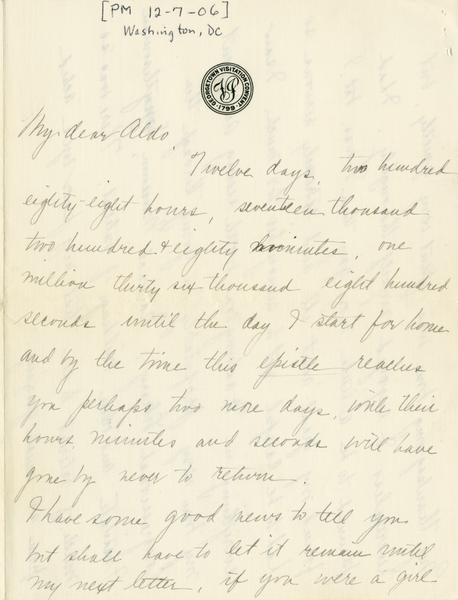 [PM 12-7-06]
Washington, DC
GEORGETOWN VISITATION CONVENT
1799
My dear Aldo,
Twelve days, two hundred
eighty-eight hours, seventeen thousand
two hundred & eighty minutes, one
million thirty six thousand eight hundred
seconds until the day I start for home
and by the time this epistle reaches
you perhaps two more days, with their
hours, minutes and seconds will have
gone by never to return.
I have some good news to tell you
but shall have to let it remain until
my next letter, if you were a girl